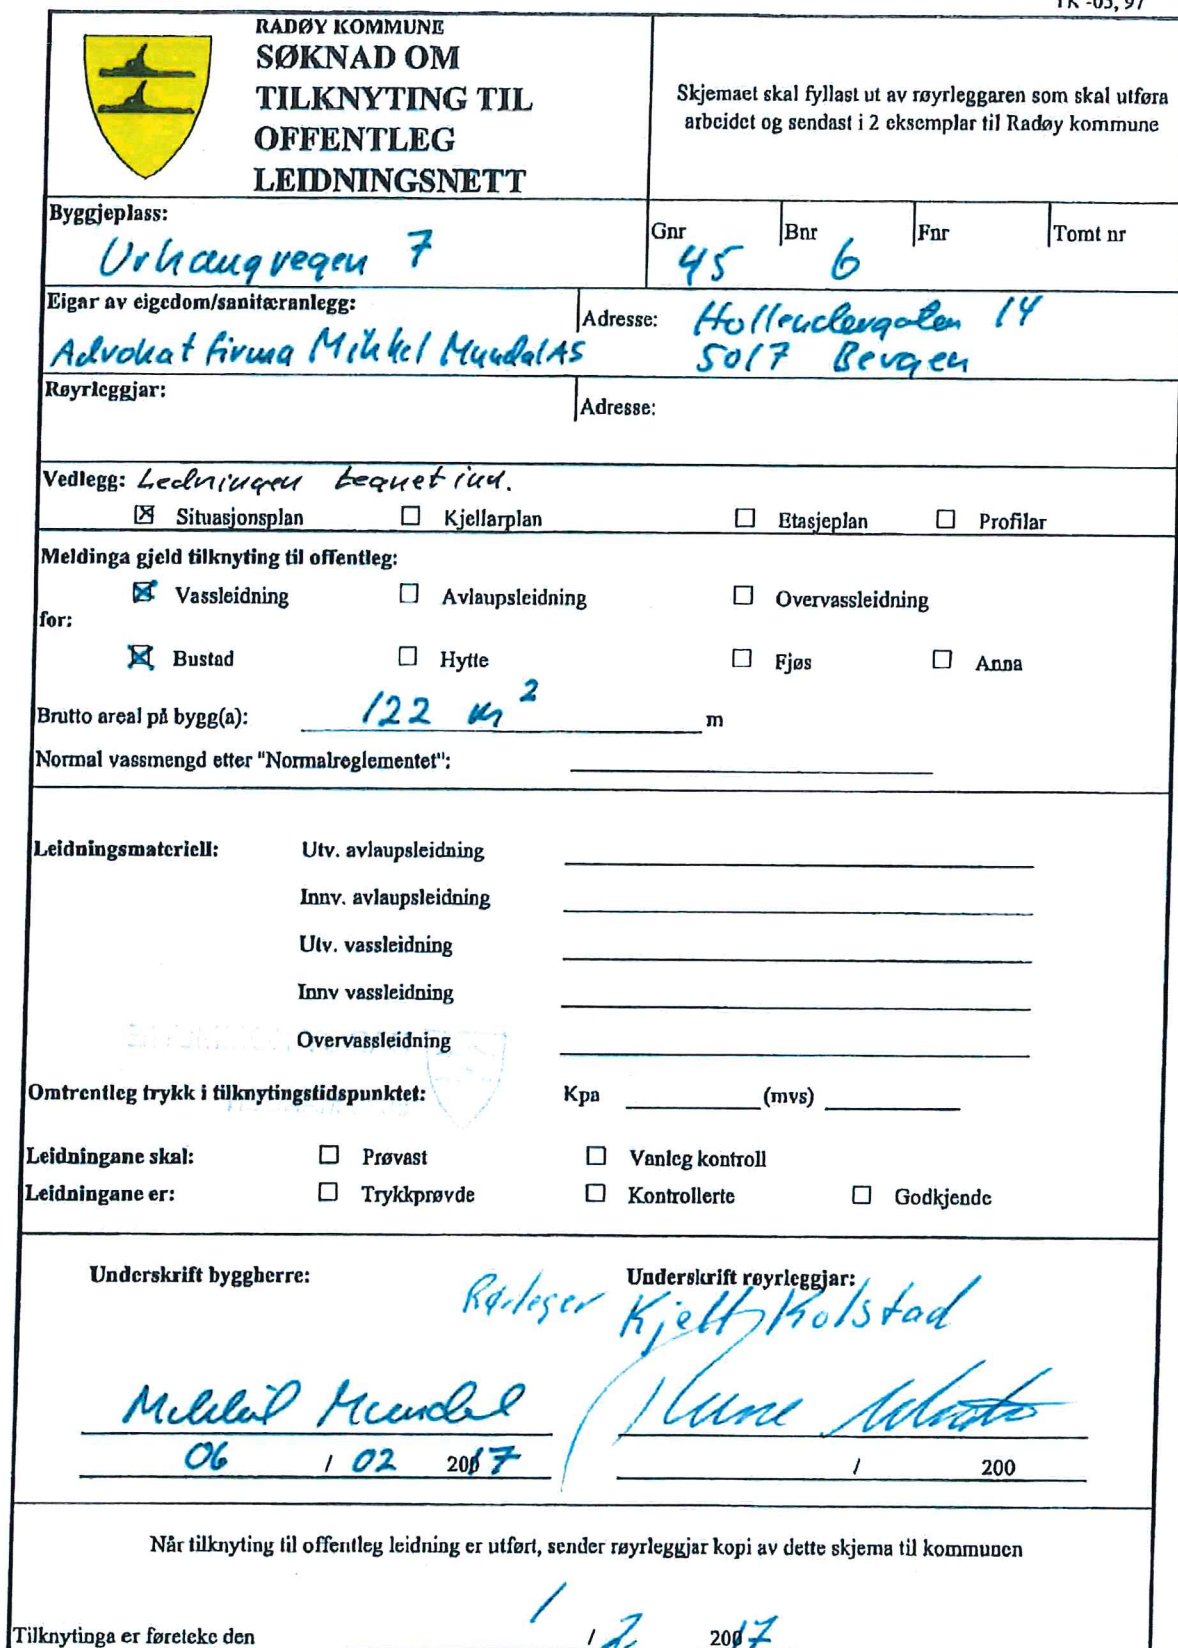 TK -05, 97
RADØY KOMMUNE
SØKNAD OM
TILKNYTING TIL
OFFENTLEG
LEIDNINGSNETT
Skjemaet skal fyllast ut av røyrleggaren som skal utføra
arbeidet og sendast i 2 eksemplar til Radøy kommune
Byggjeplass:
Urhaugvegen 7
Gnr Bnr Fnr Tomt nr
45 6
Eigar av eigedom/sanitæranlegg:
Advokatfirma Mikkel Mundal AS
Adresse: Hollendergaten 14
5017 Bergen
Røyrleggjar:
Adresse:
Vedlegg: Ledningen tegnet inn.
☒ Situasjonsplan ☐ Kjellarplan ☐ Etasjeplan ☐ Profilar
Meldinga gjeld tilknyting til offentleg:
☒ Vassleidning ☐ Avlaupsleidning ☐ Overvassleidning
for:
☒ Bustad ☐ Hytte ☐ Fjøs ☐ Anna
Brutto areal på bygg(a): 122 m² m
Normal vassmengd etter "Normalreglementet":
Leidningsmateriell: Utv. avlaupsleidning
Innv. avlaupsleidning
Utv. vassleidning
Innv vassleidning
Overvassleidning
Omtrentleg trykk i tilknytingstidspunktet: Kpa (mvs)
Leidningane skal: ☐ Prøvast ☐ Vanleg kontroll
Leidningane er: ☐ Trykkprøvde ☐ Kontrollerte ☐ Godkjende
Underskrift byggherre: Underskrift røyrleggjar:
Rørleger Kjell Kolstad
Mikkel Mundal
06 / 02 2017
/ 200
Når tilknyting til offentleg leidning er utført, sender røyrleggjar kopi av dette skjema til kommunen
Tilknytinga er føreteke den 1 / 2 2017